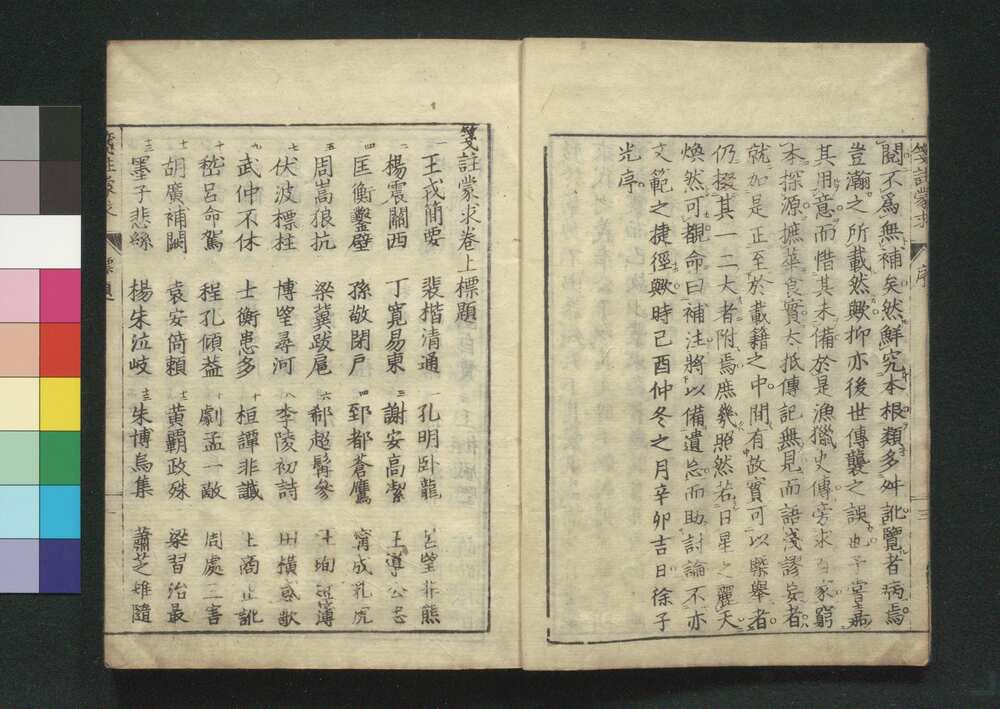 箋註蒙求 序
閱不爲無補矣然鮮究本根類多舛訛覽者病焉
豈瀚之所載然歟抑亦後世傳襲之誤也予嘗嘉
其用意而惜其未備於是漁獵史傳旁求百家窮
本探源摭華食實大抵傳記無見而語淺謬妄者
就加是正至於載籍之中間有故實可以槩舉者
仍掇其一二大者附焉庶幾照然若日星之麗天
煥然可觀命曰補注將以備遺忘而助討論不亦
文範之捷徑歟時己酉仲冬之月辛卯吉日徐子
光序
箋註蒙求卷上標題
一 王戎簡要 裴楷清通 孔明臥龍 呂望非熊
二 楊震關西 丁寬易東 三 謝安高潔 王導公忠
四 匡衡鑿壁 孫敬閉戶 四 郅都蒼鷹 甯成乳虎
五 周嵩狼抗 梁冀跋扈 六 郗超髯參 王珣短簿
伏波標柱 博望尋河 八 李陵初詩 田橫感歌
武仲不休 士衡患多 十 桓譚非讖 王商止訛
十 嵇呂命駕 程孔傾蓋 劇孟一敵 周處三害
十一 胡廣補闕 袁安倚賴 黃霸政殊 梁習治最
十三 墨子悲絲 楊朱泣岐 朱博烏集 蕭芝雉隨
標題 一